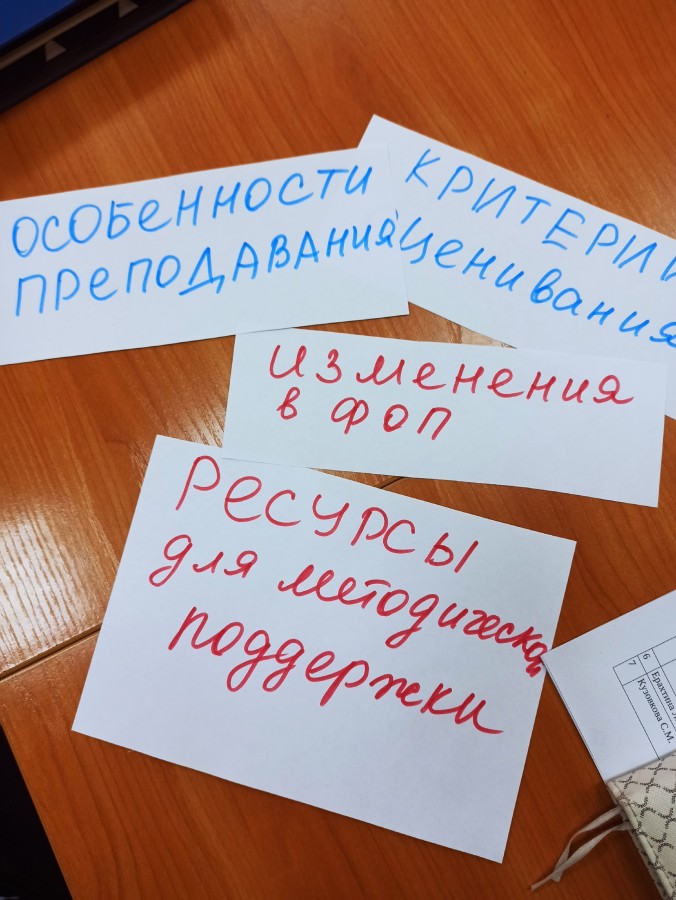 ОСОБЕННОСТИ
ПРЕПОДАВАНИЯ
КРИТЕРИИ
ценивания
ИЗМЕНЕНИЯ
в ФОП
РЕСУРСЫ
для методической
поддержки
6
Ерахтина
7
Кузовкова С.М.